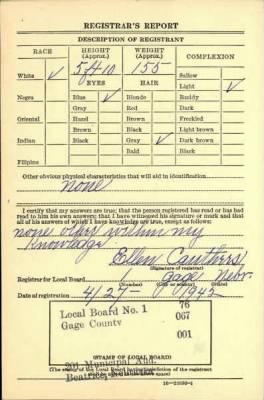 REGISTRAR'S REPORT
DESCRIPTION OF REGISTRANT
RACE HEIGHT (Approx.) WEIGHT (Approx.) COMPLEXION
White ✓ 5 ft 10 155 Sallow
EYES HAIR Light ✓
Negro Blue ✓ Blonde Ruddy
Gray Red Dark
Oriental Hazel Brown Freckled
Brown Black Light brown
Indian Black Gray ✓ Dark brown
Bald Black
Filipino
Other obvious physical characteristics that will aid in identification
none
I certify that my answers are true; that the person registered has read or has had
read to him his own answers; that I have witnessed his signature or mark and that
all of his answers of which I have knowledge are true, except as follows:
none other within my
knowledge
Ellen Cauthers
(Signature of registrar)
Registrar for Local Board 1 Gage Nebr.
(Number) (City or county) (State)
Date of registration 4/27 1942
Local Board No. 1 76
Gage County 067
001
201 Municipal Aud.
Beatrice, Nebraska
(STAMP OF LOCAL BOARD)
(The stamp of the Local Board having jurisdiction of the registrant
shall be placed in the above space.)